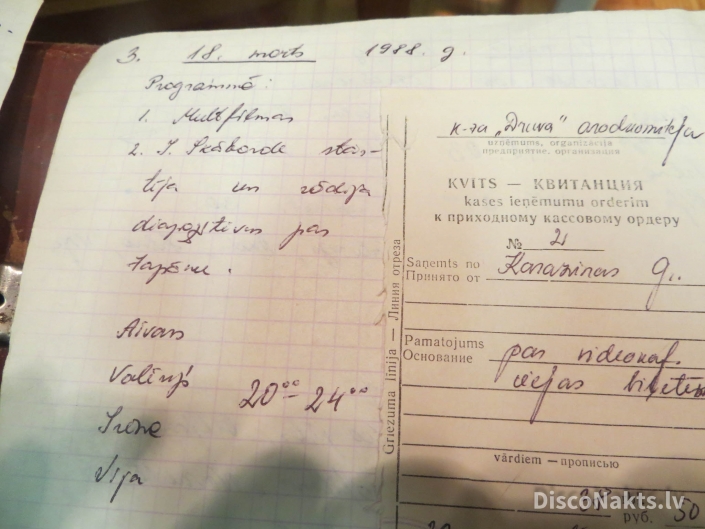 3. 18. marts 1988. g.
Programmā:
1. Multfilmas
2. I. Skāborde stās-
tīja un rādīja
diapozitīvus par
Japānu.
Aivars
Valdiņš
20⁰⁰ - 24⁰⁰
Irēne
Vija
k-za „Druva” arodkomiteja
uzņēmums, organizācija
предприятие, организация
KVĪTS — КВИТАНЦИЯ
kases ieņēmumu orderim
к приходному кассовому ордеру
№ 21
Saņemts no
Принято от
Karazinas g.
Pamatojums
Основание
par videokaf.
ieejas biļetēm
vārdiem — прописью
руб. 50
Griezuma līnija — Линия отреза
DiscoNakts.lv